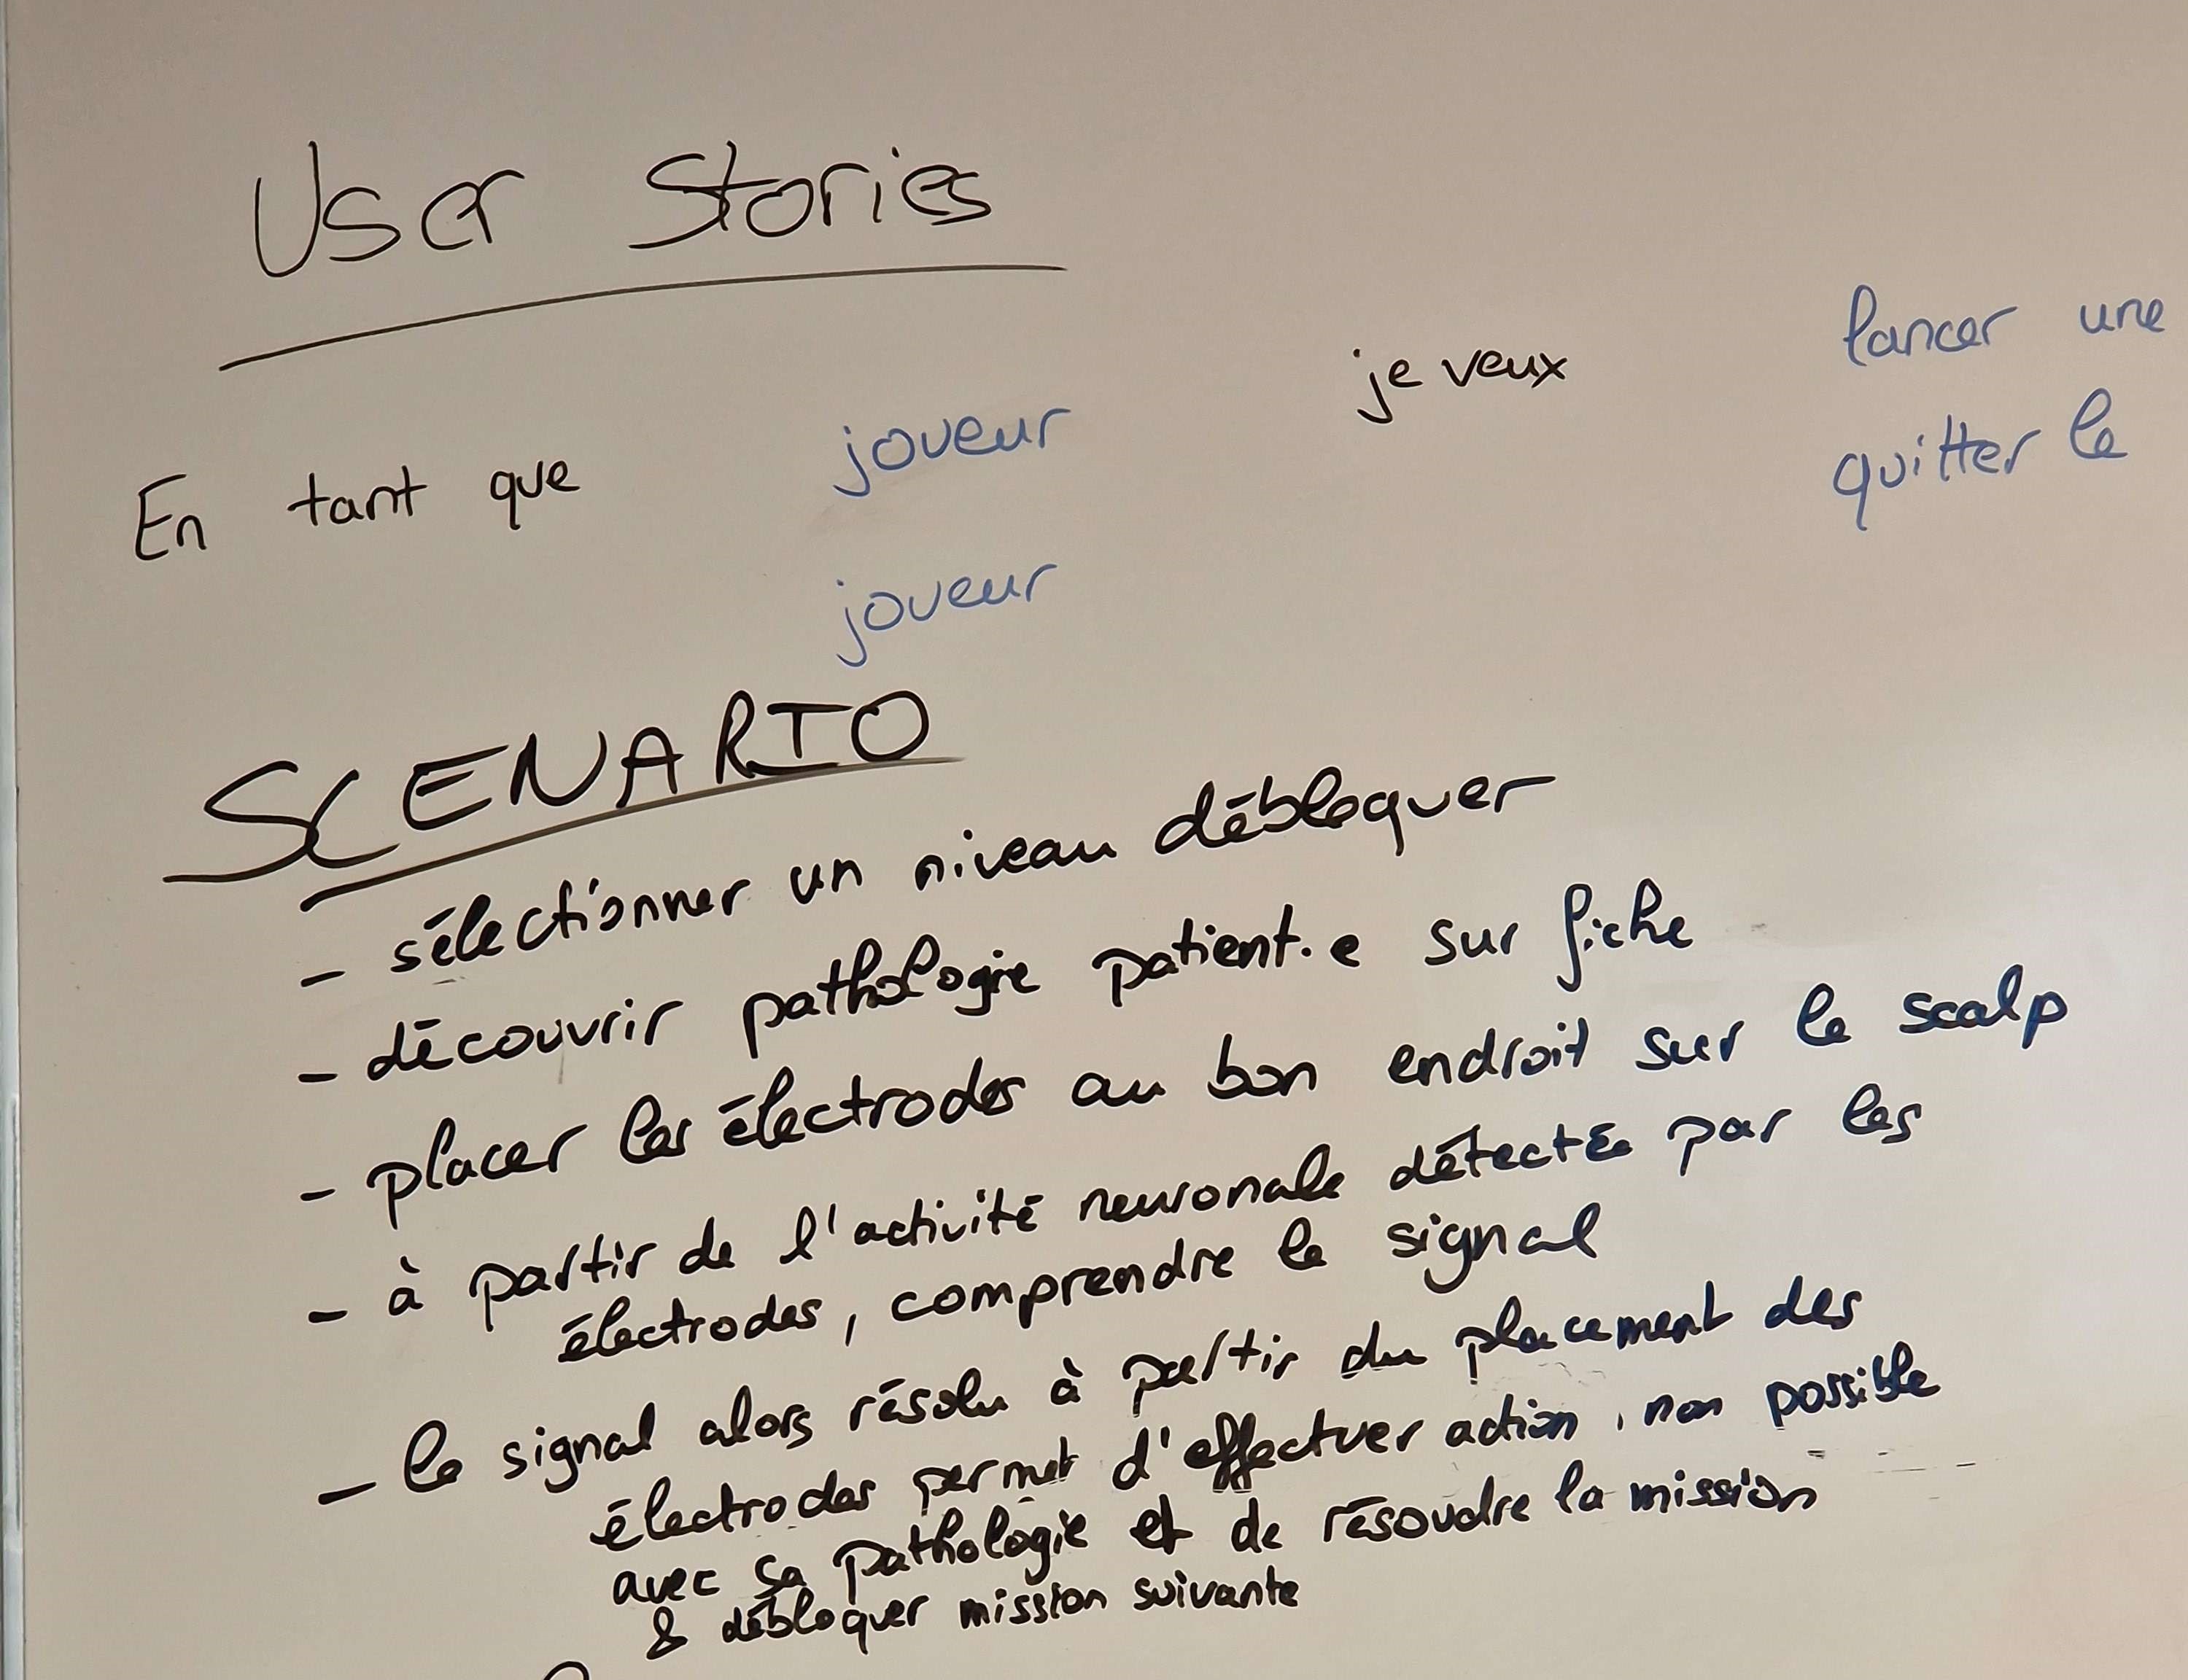 User Stories
En tant que joueur je veux lancer une
quitter le
joueur
SCENARIO
- sélectionner un niveau débloquer
- découvrir pathologie patient.e sur fiche
- placer les électrodes au bon endroit sur le scalp
- à partir de l'activité neuronale détectée par les
électrodes, comprendre le signal
- le signal alors résolu à partir du placement des
électrodes permet d'effectuer action, non possible
avec sa pathologie et de résoudre la mission
& débloquer mission suivante